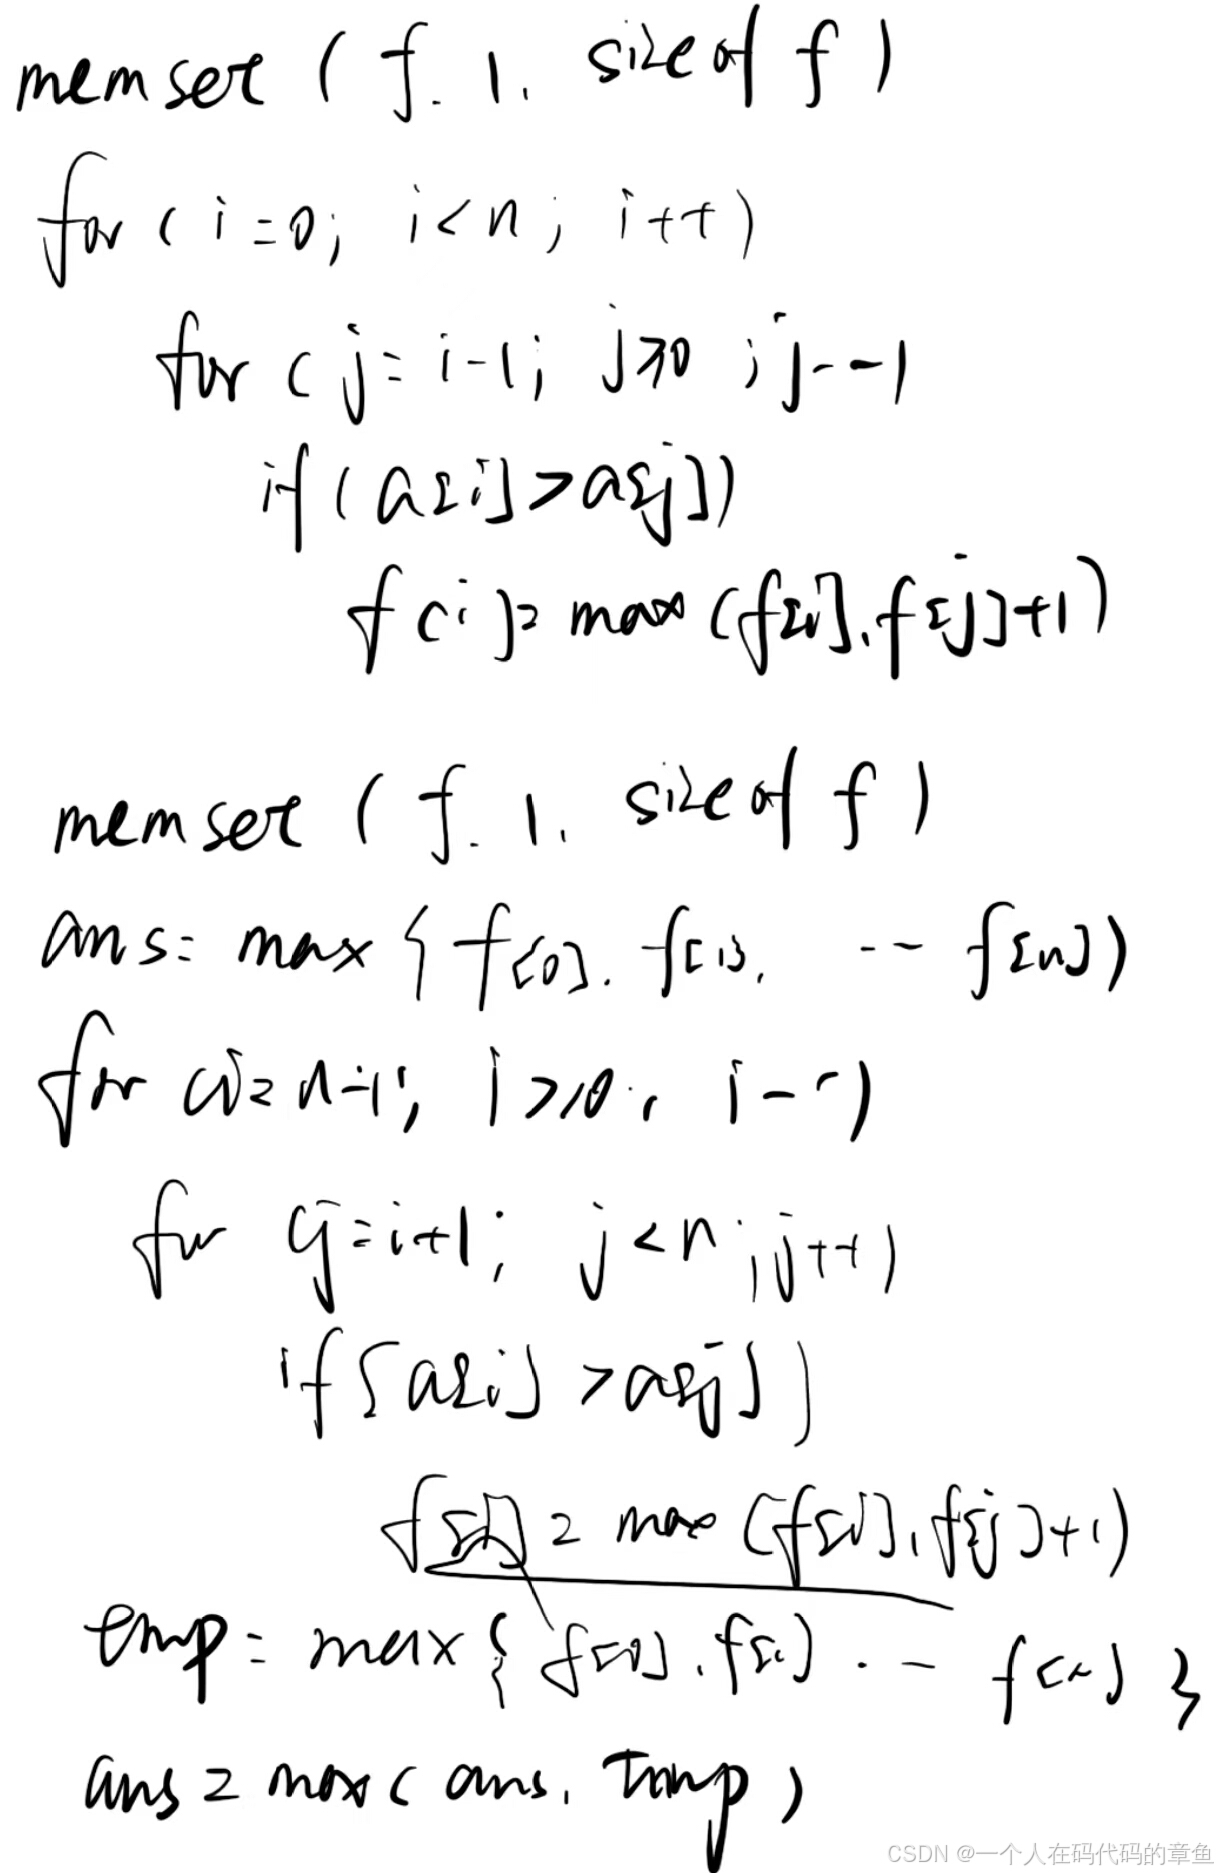 memset ( f. 1. sizeof f )
for ( i=0; i<n ; i++)
for ( j= i-1; j≥0 ; j--)
if (a[i]>a[j])
f[i]= max (f[i], f[j]+1)
memset ( f. 1. sizeof f )
ans= max { f[0]. f[1], -- f[n])
for (i= n-1; i≥0; i--)
for (j=i+1; j<n; j++)
if (a[i] >a[j])
f[i] = max (f[i], f[j]+1)
temp= max { f[0]. f[1] . -- f[n] }
ans= max( ans. temp )
CSDN @一个人在码代码的章鱼